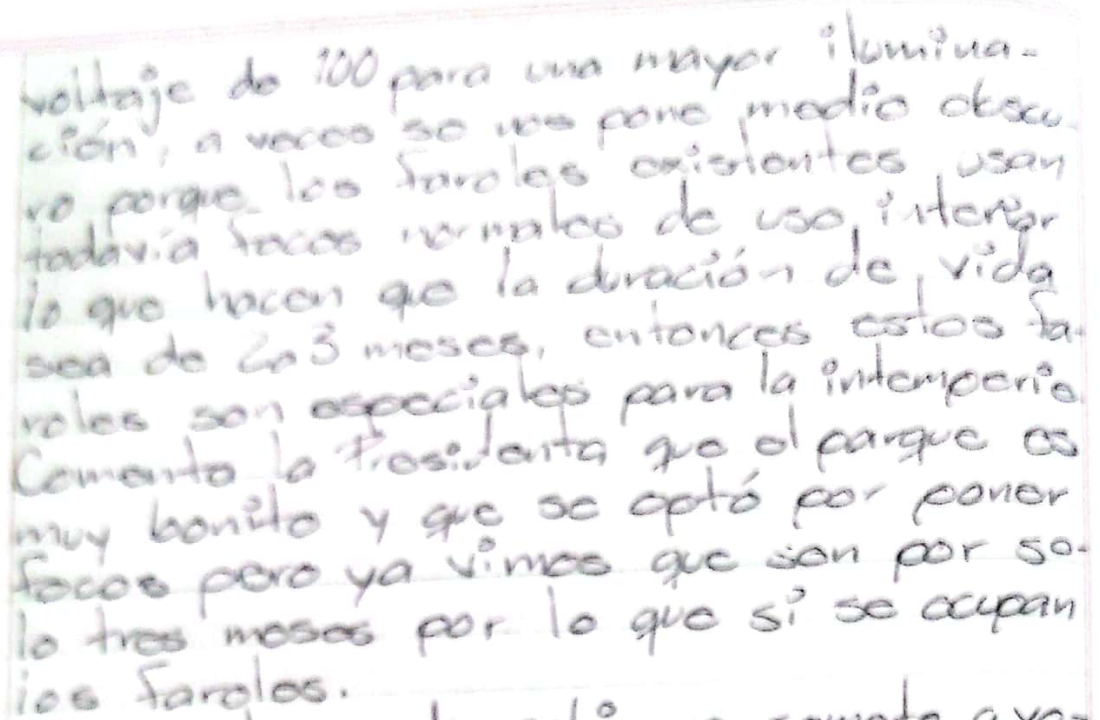 voltaje de 100 para una mayor ilumina-
ción, a veces se nos pone medio obscu
ro porque los faroles existentes usan
todavía focos normales de uso interior
lo que hacen que la duración de vida
sea de 2 o 3 meses, entonces estos fa-
roles son especiales para la intemperie
Comento la Presidenta que el parque es
muy bonito y que se optó por poner
focos pero ya vimos que son por so-
lo tres meses por lo que si se ocupan
los faroles.